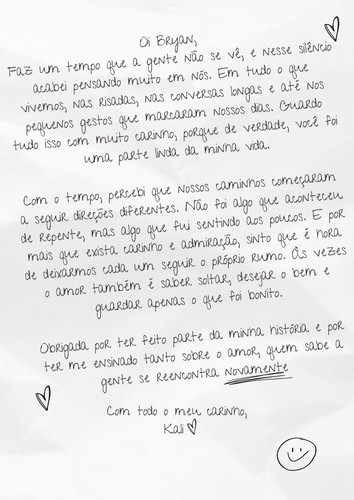 Oi Bryan,
Faz um tempo que a gente não se vê, e nesse silêncio
acabei pensando muito em nós. Em tudo o que
vivemos, nas risadas, nas conversas longas e até nos
pequenos gestos que marcaram nossos dias. Guardo
tudo isso com muito carinho, porque de verdade, você foi
uma parte linda da minha vida.
Com o tempo, percebi que nossos caminhos começaram
a seguir direções diferentes. Não foi algo que aconteceu
de repente, mas algo que fui sentindo aos poucos. E por
mais que exista carinho e admiração, sinto que é hora
de deixarmos cada um seguir o próprio rumo. Às vezes
o amor também é saber soltar, desejar o bem e
guardar apenas o que foi bonito.
Obrigada por ter feito parte da minha história e por
ter me ensinado tanto sobre o amor, quem sabe a
gente se reencontra novamente
Com todo o meu carinho,
Kali